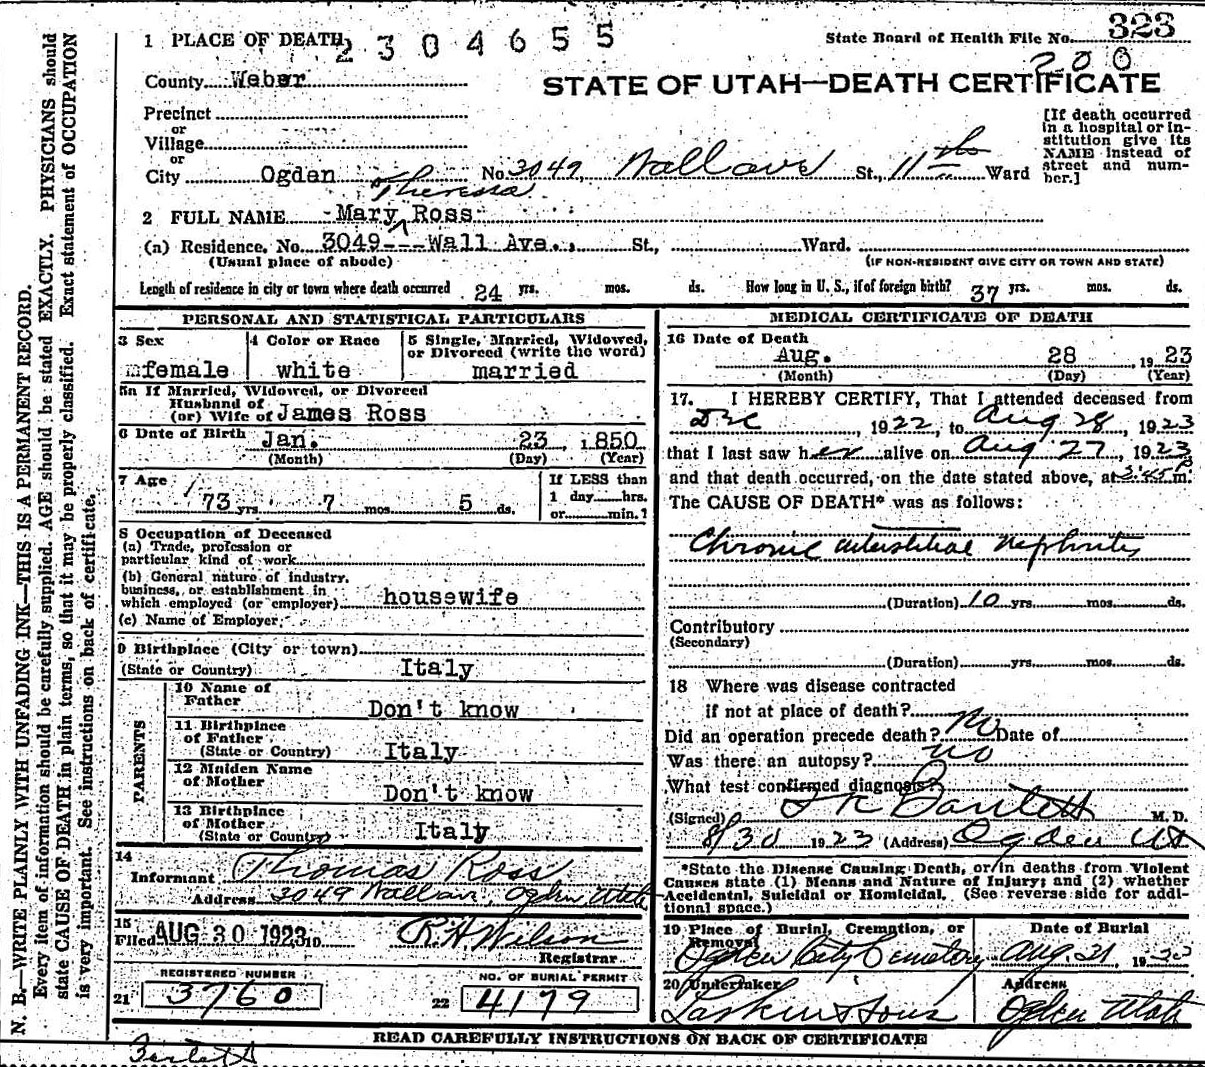 N. B.—WRITE PLAINLY WITH UNFADING INK—THIS IS A PERMANENT RECORD.
Every item of information should be carefully supplied. AGE should be stated EXACTLY. PHYSICIANS should
state CAUSE OF DEATH in plain terms, so that it may be properly classified. Exact statement of OCCUPATION
is very important. See instructions on back of certificate.
State Board of Health File No. 323
1 PLACE OF DEATH
2304655
200
County Weber
STATE OF UTAH—DEATH CERTIFICATE
Precinct
or
Village
or
City Ogden No. 3049, Wall ave St., 11th Ward
[If death occurred
in a hospital or in-
stitution give its
NAME instead of
street and num-
ber.]
Theressa
2 FULL NAME Mary ^ Ross
(a) Residence. No. 3049--- Wall Ave., St., Ward.
(Usual place of abode)
(IF NON-RESIDENT GIVE CITY OR TOWN AND STATE)
Length of residence in city or town where death occurred 24 yrs. mos. ds. How long in U. S., if of foreign birth? 37 yrs. mos. ds.
PERSONAL AND STATISTICAL PARTICULARS
3 Sex
female
4 Color or Race
white
5 Single, Married, Widowed,
or Divorced (write the word)
married
5a If Married, Widowed, or Divorced
Husband of
(or) Wife of James Ross
6 Date of Birth Jan. 23, 1850
(Month) (Day) (Year)
7 Age
73 yrs 7 mos 5 ds.
If LESS than
1 day hrs.
or min.?
8 Occupation of Deceased
(a) Trade, profession or
particular kind of work
(b) General nature of industry,
business, or establishment in
which employed (or employer) housewife
(c) Name of Employer
9 Birthplace (City or town)
(State or Country) Italy
PARENTS
10 Name of
Father Don't know
11 Birthplace
of Father
(State or Country) Italy
12 Maiden Name
of Mother Don't know
13 Birthplace
of Mother
(State or Country) Italy
14
Informant Thomas Ross
Address 3049 Wall ave, Ogden Utah
15
Filed AUG 30 1923 19
R.H. Wilson
Registrar
REGISTERED NUMBER
21 3760
NO. OF BURIAL PERMIT
22 4179
MEDICAL CERTIFICATE OF DEATH
16 Date of Death
Aug. 28, 1923
(Month) (Day) (Year)
17. I HEREBY CERTIFY, That I attended deceased from
Dec, 1922, to Aug 28, 1923
that I last saw her alive on Aug 27, 1923
and that death occurred, on the date stated above, at 3:45 P. m.
The CAUSE OF DEATH* was as follows:
Chronic interstitial nephritis
(Duration) 10 yrs. mos. ds.
Contributory
(Secondary)
(Duration) yrs. mos. ds.
18 Where was disease contracted
if not at place of death?
Did an operation precede death? No Date of
Was there an autopsy? no
What test confirmed diagnosis?
(Signed) Bartlett M. D.
8/30 1923 (Address) Ogden Ut
*State the Disease Causing Death, or in deaths from Violent
Causes state (1) Means and Nature of Injury; and (2) whether
Accidental, Suicidal or Homicidal. (See reverse side for addi-
tional space.)
19 Place of Burial, Cremation, or
Removal
Ogden City Cemetery
Date of Burial
Aug. 31, 1923
20 Undertaker
Larkin & Sons
Address
Ogden Utah
READ CAREFULLY INSTRUCTIONS ON BACK OF CERTIFICATE
Bartlett